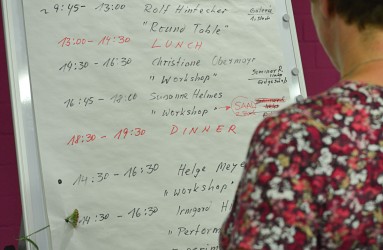 9:45 - 13:00 Rolf Hinterecker Galerie
"Round Table" 1. Stock
13:00 - 14:30 LUNCH
14:30 - 16:30 Christiane Obermayr
"Workshop" Seminar R.
16:45 - 18:00 Susanne Helmes
"Workshop" → SAAL
18:30 - 19:30 DINNER
• 14:30 - 16:30 Helge Meye
"Workshop"
14:30 - 16:30 Irmgard H
"Perform